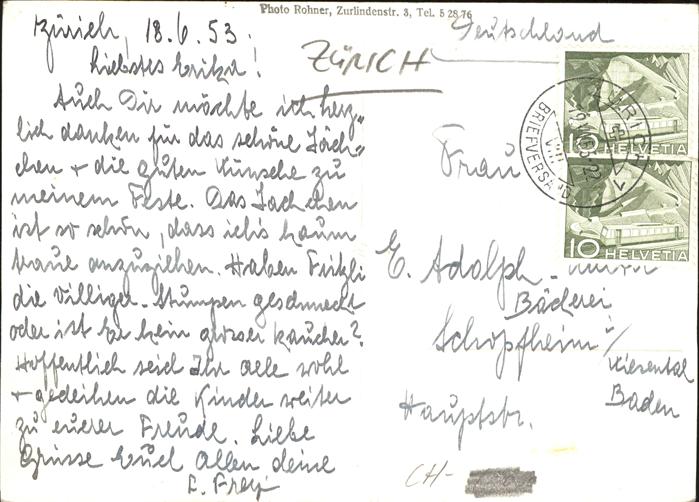 Photo Rohner, Zurlindenstr. 3, Tel. 5 28 76
Zürich, 18.6.53.
Liebstes Erika!
Auch Dir möchte ich herz-
lich danken für das schöne Jäck-
chen + die guten Wünsche zu
meinem Feste. Das Jäckchen
ist so schön, dass ich's kaum
traue anzuziehen. Haben Fritzli
die Villiger-Stumpen geschmeckt
oder ist er kein grosser Raucher?
Hoffentlich seid Ihr alle wohl
+ gedeihen die Kinder weiter
zu eurer Freude. Liebe
Grüsse Euch allen deine
E. Frey
ZÜRICH
Deutschland
Frau
E. Adolph-
Bäckerei
Schopfheim i/
Wiesental
Baden
Hauptstr.
CH-
ZÜRICH 1
BRIEFVERSAND
10 HELVETIA
10 HELVETIA